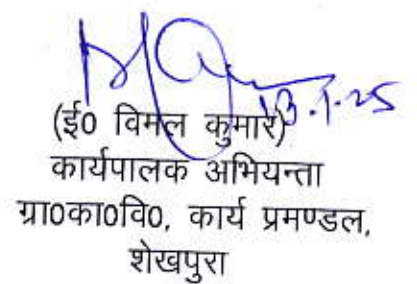 13.1.25
(ई0 विमल कुमार)
कार्यपालक अभियन्ता
ग्रा0का0वि0, कार्य प्रमण्डल,
शेखपुरा